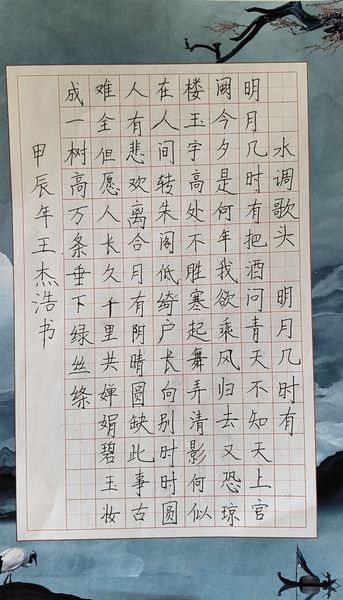 水调歌头 明月几时有
明月几时有把酒问青天不知天上宫
阙今夕是何年我欲乘风归去又恐琼
楼玉宇高处不胜寒起舞弄清影何似
在人间转朱阁低绮户长向别时时圆
人有悲欢离合月有阴晴圆缺此事古
难全但愿人长久千里共婵娟碧玉妆
成一树高万条垂下绿丝绦
甲辰年王杰浩书